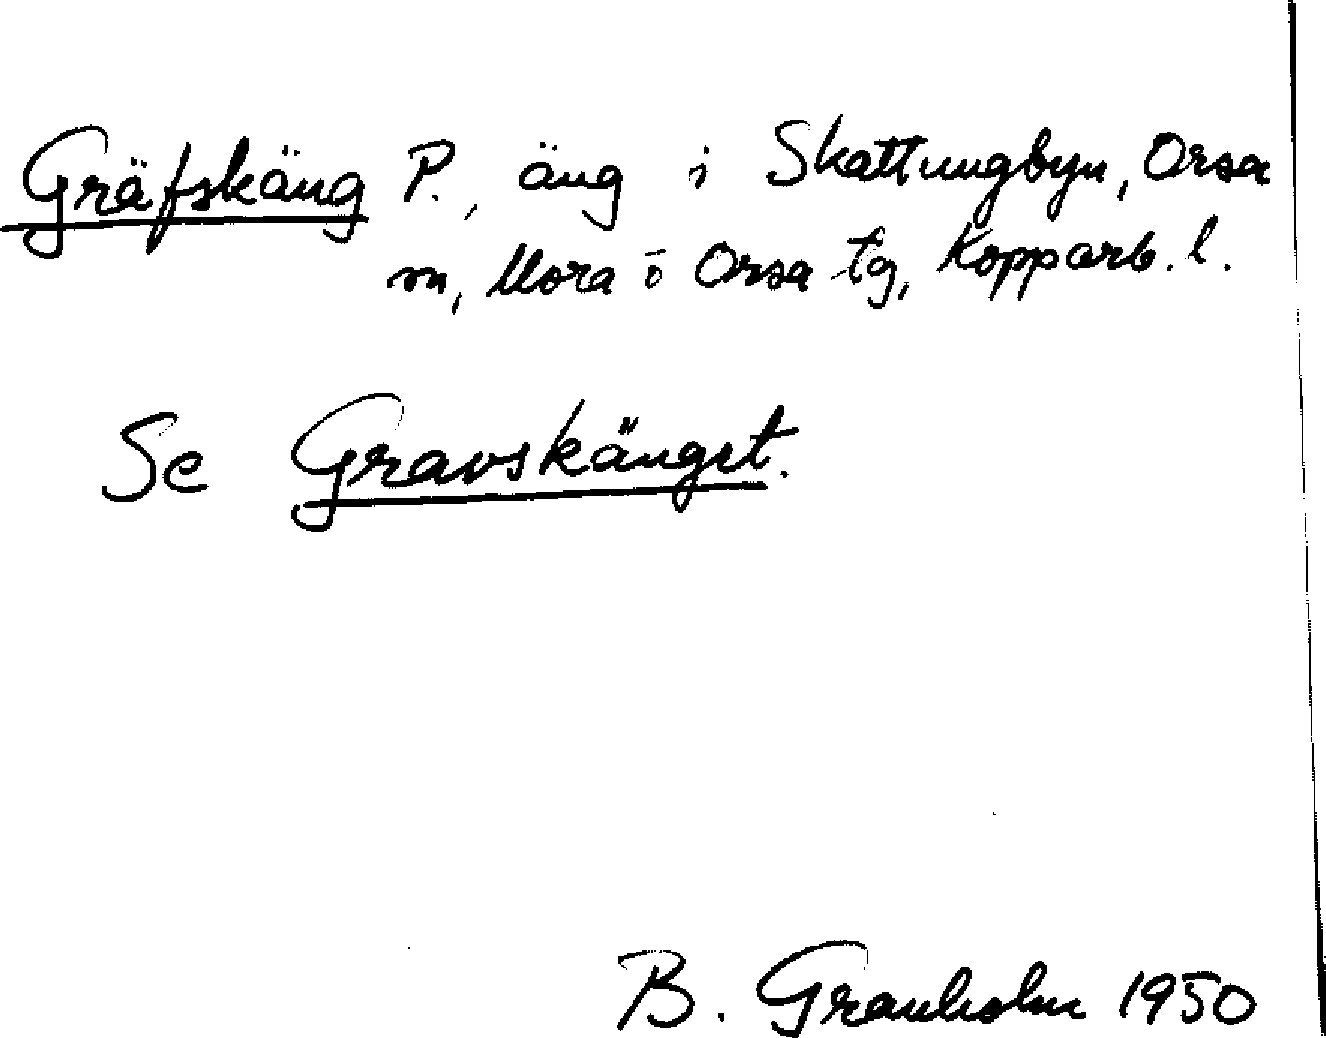 Gräfskäng P., äng i Skattungbyn, Orsa
sn, Mora o Orsa tg, Kopparb. l.
Se Gravskänget.
B. Granholm 1950